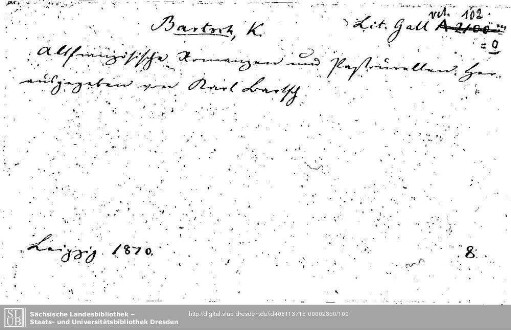 Bartsch, K.
Lit. Gall
vet. 102
Altfranzösische Romanzen und Pastourellen. Her-
ausgegeben von Karl Bartsch.
Leipzig 1870.
8
Sächsische Landesbibliothek –
Staats- und Universitätsbibliothek Dresden